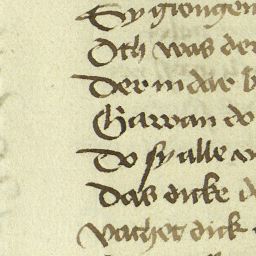 Sy giengen
Och was der
Der in dar
Garvan do
Do sy alle
Das dicke
vachet dick